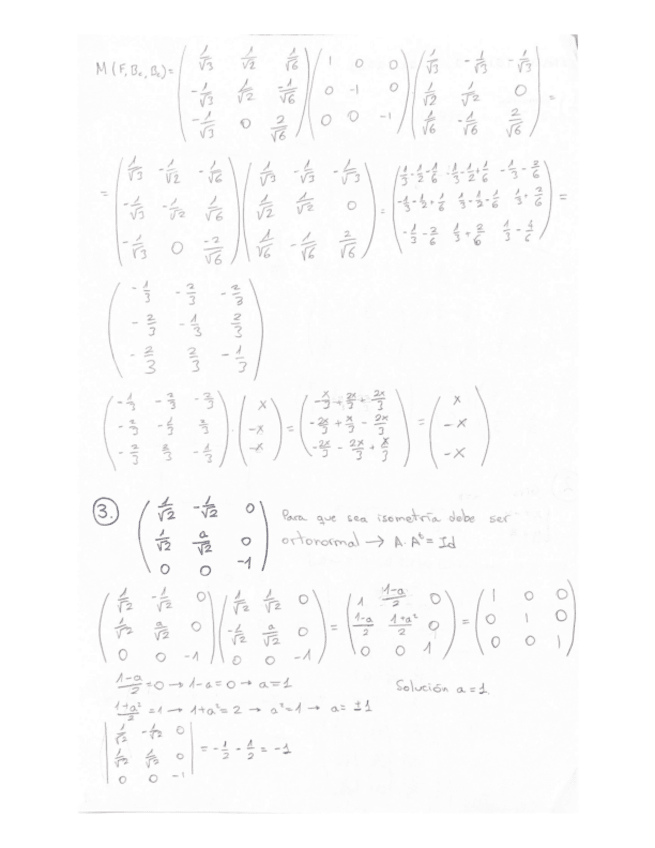 M(F,B₀,B₀)= (1/√3 1/√2 1/√6; -1/√3 1/√2 -1/√6; -1/√3 0 2/√6) (1 0 0; 0 -1 0; 0 0 -1) (1/√3 -1/√3 -1/√3; 1/√2 1/√2 0; 1/√6 -1/√6 2/√6) =
= (1/√3 -1/√2 -1/√6; -1/√3 -1/√2 1/√6; -1/√3 0 -2/√6) (1/√3 -1/√3 -1/√3; 1/√2 1/√2 0; 1/√6 -1/√6 2/√6) = (1/3-1/2-1/6 -1/3-1/2+1/6 -1/3-2/6; -1/3-1/2+1/6 1/3-1/2-1/6 1/3+2/6; -1/3-2/6 1/3+2/6 1/3-4/6) =
(-1/3 -2/3 -2/3; -2/3 -1/3 2/3; -2/3 2/3 -1/3)
(-1/3 -2/3 -2/3; -2/3 -1/3 2/3; -2/3 2/3 -1/3) · (x; -x; -x) = (-x/3+2x/3+2x/3; -2x/3+x/3-2x/3; -2x/3-2x/3+x/3) = (x; -x; -x)
3. (1/√2 -1/√2 0; 1/√2 a/√2 0; 0 0 -1) Para que sea isometría debe ser
ortonormal → A·Aᵗ=Id
(1/√2 -1/√2 0; 1/√2 a/√2 0; 0 0 -1) (1/√2 1/√2 0; -1/√2 a/√2 0; 0 0 -1) = (1 1-a/2 0; 1-a/2 1+a²/2 0; 0 0 1) = (1 0 0; 0 1 0; 0 0 1)
1-a/2=0 → 1-a=0 → a=1 Solución a=1.
1+a²/2=1 → 1+a²=2 → a²=1 → a=±1
|1/√2 -1/√2 0; 1/√2 1/√2 0; 0 0 -1| = -1/2 - 1/2 = -1